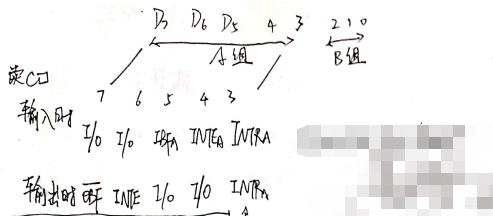 D7 D6 D5 4 3 2 1 0
A组 B组
读C口
7 6 5 4 3
输入时 I/O I/O IBFA INTEA INTRA
输出时 INTE I/O I/O INTRA